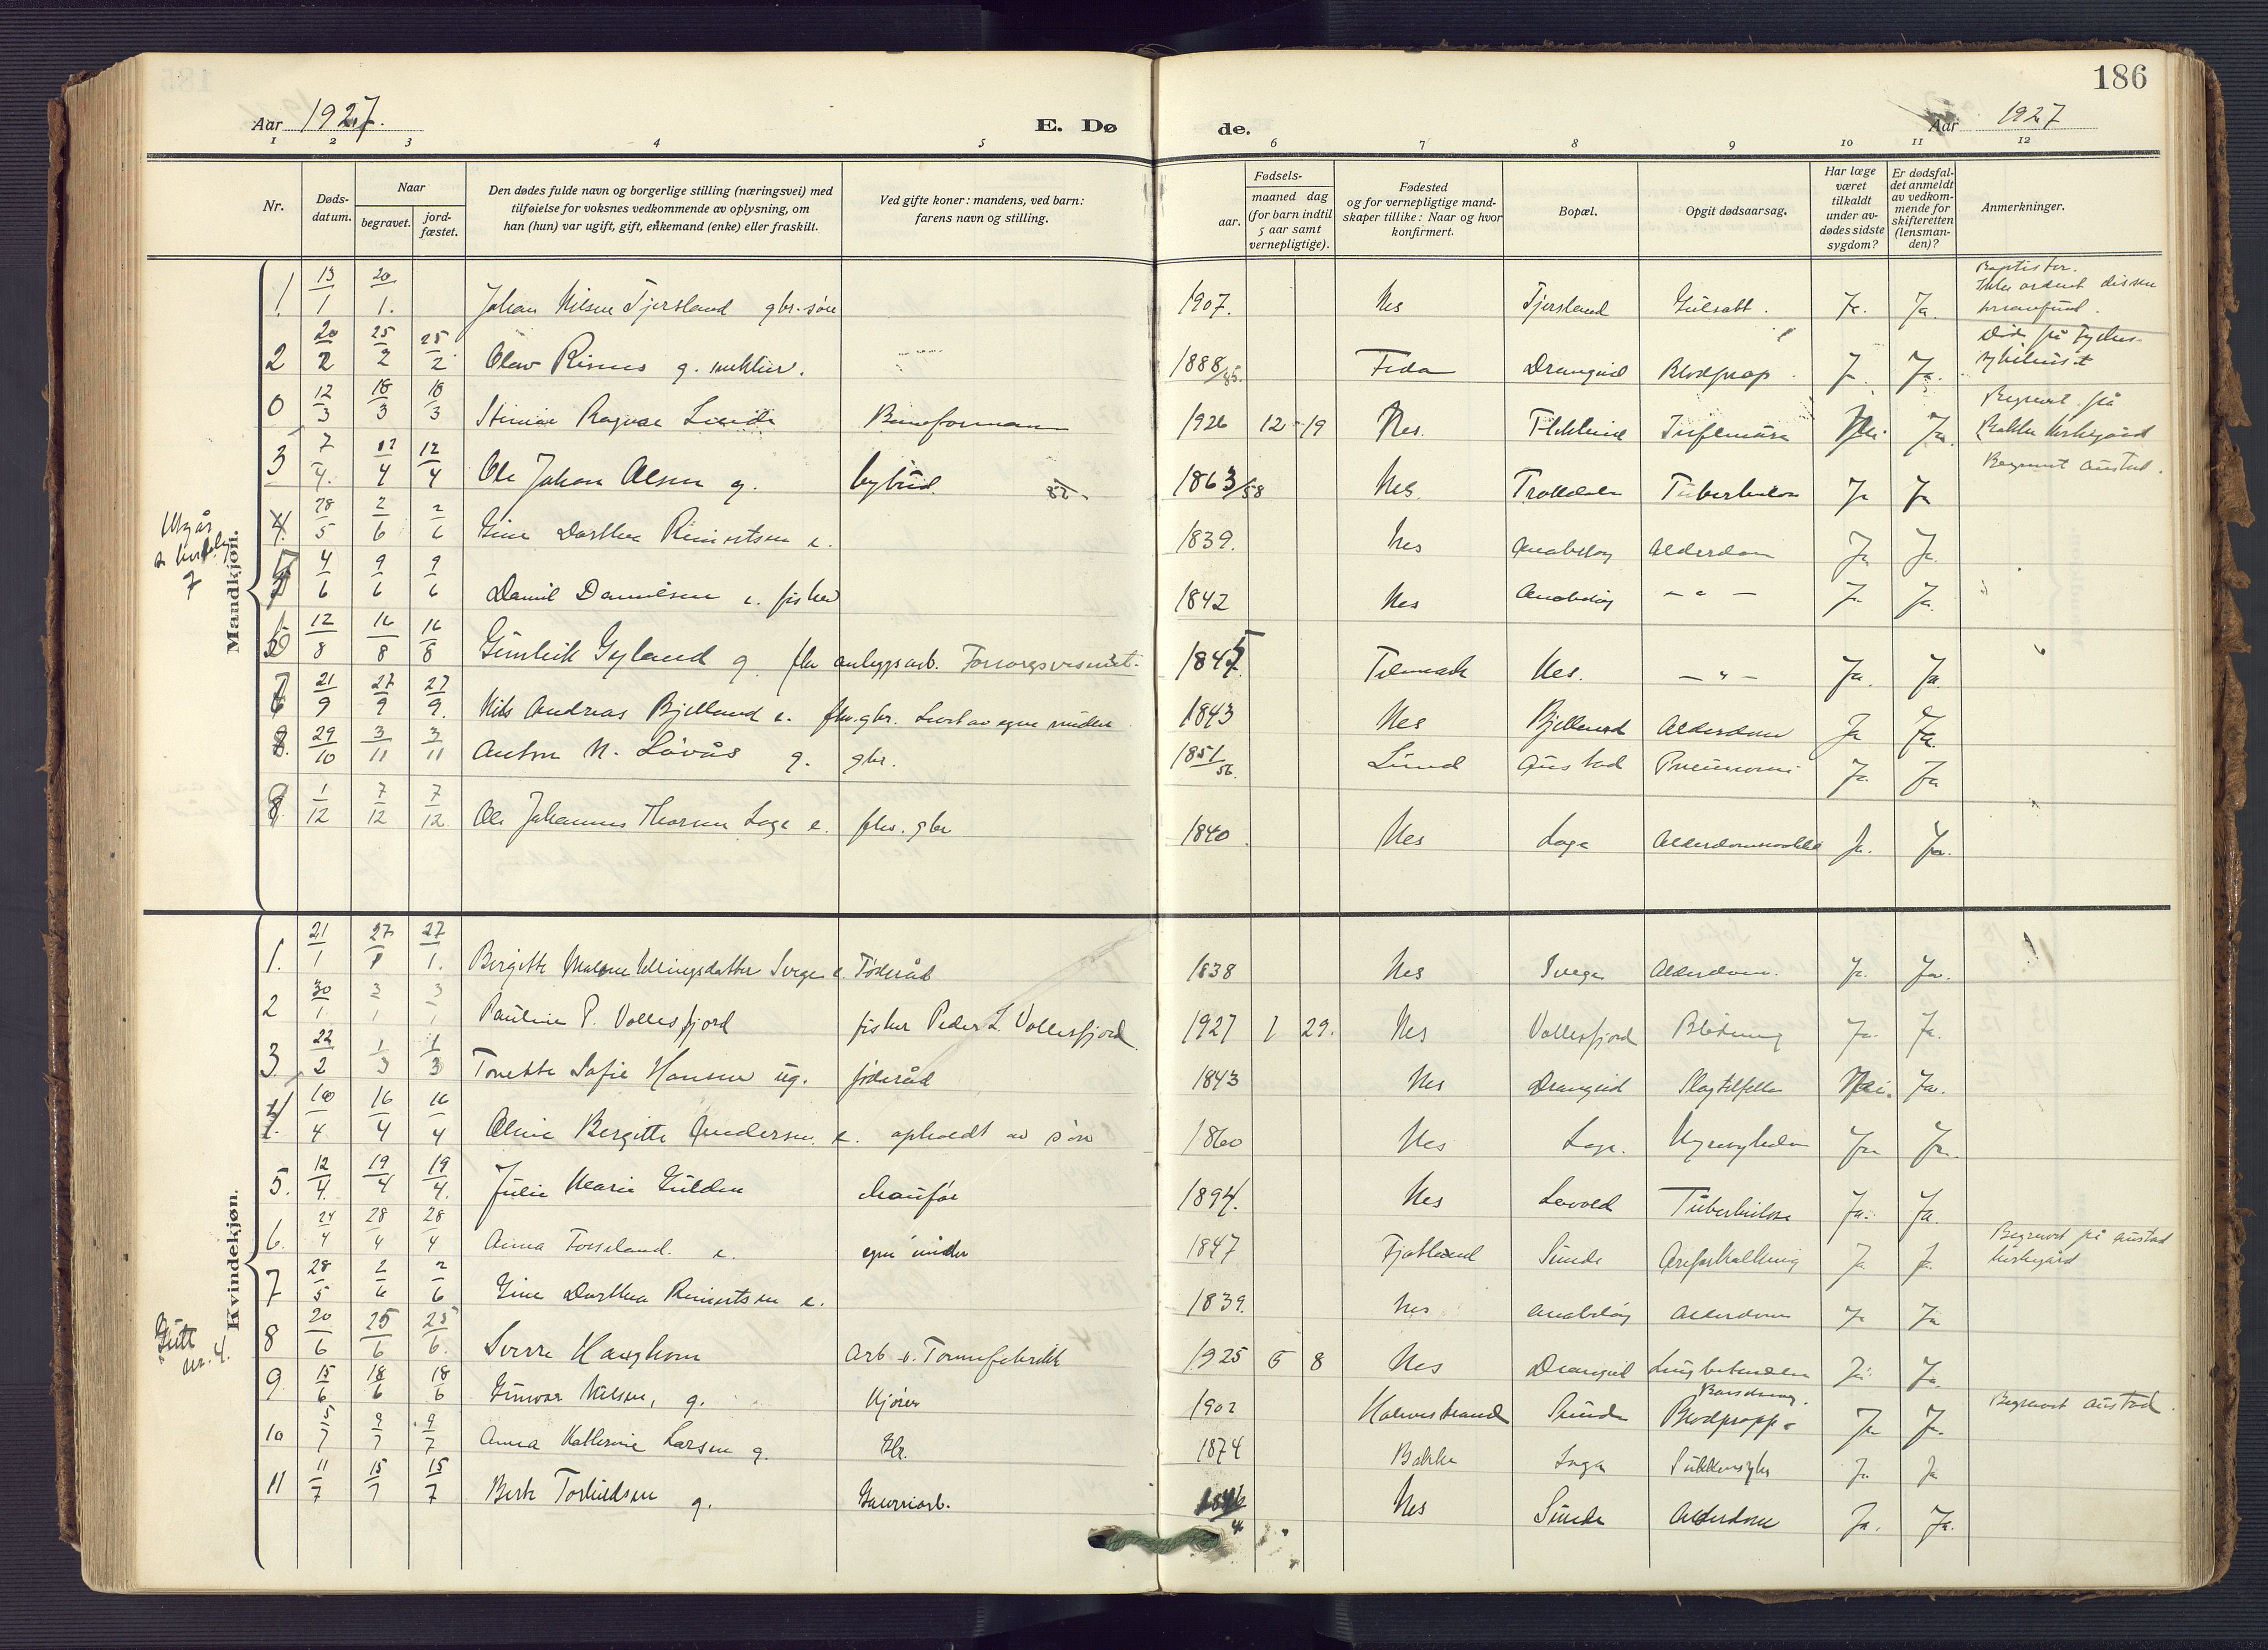 186
Aar 1927. E. Dø de. Aar 1927
1 2 3 4 5 6 7 8 9 10 11 12
Nr. Døds-datum. Naar begravet. jord-fæstet. Den dødes fulde navn og borgerlige stilling (næringsvei) med tilføielse for voksnes vedkommende av oplysning, om han (hun) var ugift, gift, enkemand (enke) eller fraskilt. Ved gifte koner: mandens, ved barn: farens navn og stilling. Fødsels- aar. maaned dag (for barn indtil 5 aar samt vernepligtige). Fødested og for vernepligtige mand-skaper tillike: Naar og hvor konfirmert. Bopæl. Opgit dødsaarsag. Har læge været tilkaldt under av-dødes sidste sygdom? Er dødsfal-det anmeldt av vedkom-mende for skifteretten (lensman-den)? Anmerkninger.
Mandkjøn.
Utgår
7
1. 13/1 20/1. Johan Nilsen Tjersland gbr. søn 1907. Nes Tjersland Gulsott. Ja. Ja. Baptister.
2 20/2 25/2 25/2 Olav Risnes g. 1888/85. Feda Drangeid Blodprop. Ja Ja. Død på
0 12/3 18/3 18/3 Ragvar Lunde Baneformann 1926 12 19 Nes. Flikkeid Nei. Ja. Begravet på Bakke kirkegård
3 7/4. 12/4 12/4 Ole Johan Olsen g. bybud. 1863/58 Nes. Trolldalen Tuberkulose Ja Ja Begravet Austad.
4 28/5 2/6 2/6 Gine Dorthea Reinertsen e. 1839. Nes Anabeløy Alderdom Ja Ja.
4/6 9/6 9/6 Daniel Danielsen e. fisker 1842 Nes Anabeløy — " — Ja Ja.
12/8 16/8 16/8 Gunleik Gyland g. fhv anleggsarb. Forsorgsvesenet. 1845 Telemark Nes. — " — Ja. Ja.
21/9 27/9 27/9. Nils Andreas Bjelland e. fhv. gbr. Levet av egne midler 1843 Nes Bjelland Alderdom Ja Ja.
29/10 3/11 3/11 Anton N. Løvås g. gbr. 1851/56. Lund Austad Pneumoni Ja Ja
8 1/12 7/12 7/12 Ole Johannes Thorsen Loge e. fhv. gbr 1840 Nes Loge Alderdomssvakhet Ja. Ja.
Kvindekjøn.
Gutt
nr. 4.
1. 21/1 27/1 27/1. Bergitte Malene Ellingsdatter Svege e. Føderåd 1838 Nes Svege Alderdom. Ja. Ja.
2 30/1. 3 3 Pauline P. Vollesfjord fisker Peder L. Vollesfjord 1927 1 29. Nes Vollesfjord Blødning Ja. Ja.
3. 22/2 1/3 1/3 Tonette Sofie Hansen ug. føderåd 1843 Nes Drangeid Slagtilfelle Nei. Ja.
4 10/4 16/4 16/4 Oline Bergitte Andersen e. opholdt av søn 1860 Nes Loge. Nyresykdom Ja Ja.
5. 12/4. 19/4 19/4. Julie Marie Gulden 1894. Nes Lavold Tuberkulose Ja. Ja.
6. 24/4 28/4 28/4 Anna Forsland. e. egne midler 1847 Fjotland Sunde Areforkalkning Ja Ja. Begravet på Austad kirkegård
7 28/5 2/6 2/6 Gine Dorthea Reinertsen e. 1839. Nes Anabeløy Alderdom Ja Ja
8 20/6 25/6 25/6. Sverre Haughom Arb v. Tønnefabrikk 1925 5 8 Nes Drangeid Lungbetendelse Ja. Ja.
9 15/6 18/6 18/6 Gunvor Nilsen, g. kjører 1902 Holmestrand Sunde Barselseng. Blodpropp Ja. Ja. Begravet Austad.
10 5/7 9/7 9/7 Anna Kathrine Larsen g. Gbr. 1874 Bakke Loga Sukkersyke Ja. Ja
11 11/7 15/7 15/7 Berte Torkildsen g. Garveriarb. Nes Sunde Alderdom Ja. Ja.